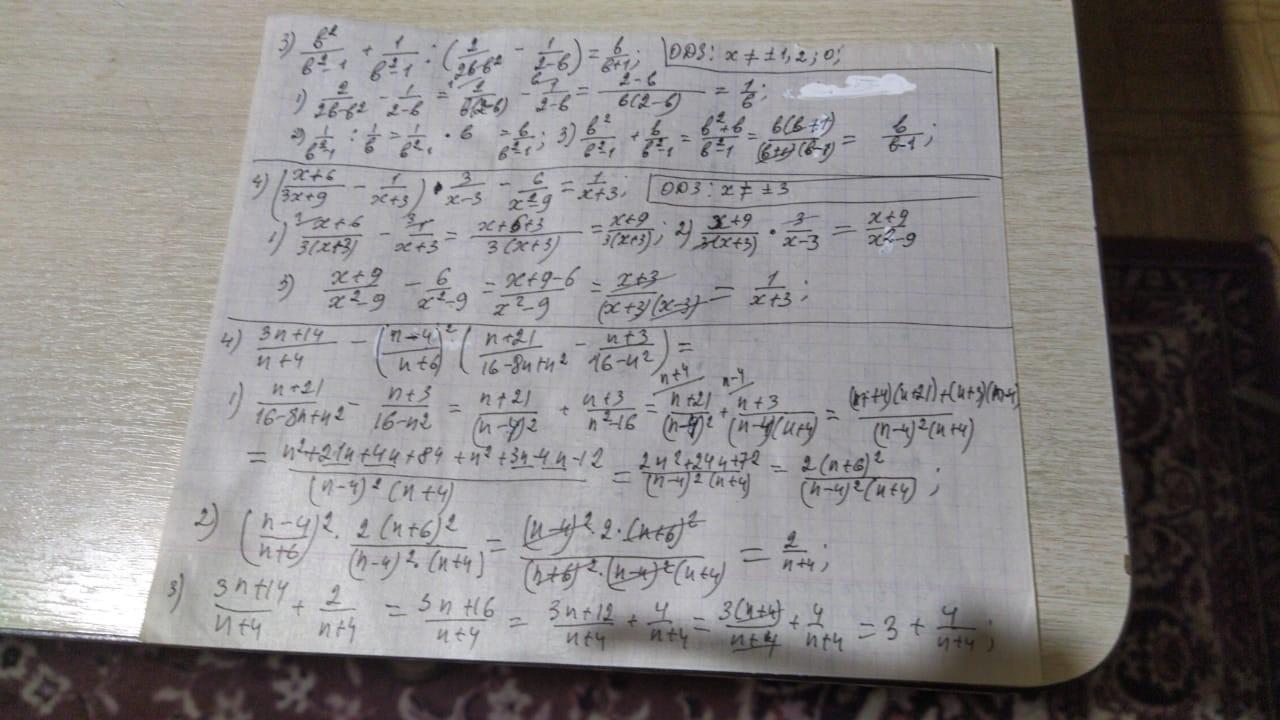 3) b²/(b²-1) + 1/(b²-1) : (2/(2b-b²) - 1/(2-b)) = b/(b+1); ОДЗ: x ≠ ±1, 2; 0;
1) 2/(2b-b²) - 1/(2-b) = 2/(b(2-b)) - 1/(2-b) = (2-b)/(b(2-b)) = 1/b;
2) 1/(b²-1) : 1/b = 1/(b²-1) · b = b/(b²-1); 3) b²/(b²-1) + b/(b²-1) = (b²+b)/(b²-1) = b(b+1)/((b+1)(b-1)) = b/(b-1);
4) ((x+6)/(3x+9) - 1/(x+3)) · 3/(x-3) - 6/(x²-9) = 1/(x+3); ОДЗ: x ≠ ±3
1) (x+6)/(3(x+3)) - 1/(x+3) = (x+6+3)/(3(x+3)) = (x+9)/(3(x+3)); 2) (x+9)/(3(x+3)) · 3/(x-3) = (x+9)/(x²-9)
3) (x+9)/(x²-9) - 6/(x²-9) = (x+9-6)/(x²-9) = (x+3)/((x+3)(x-3)) = 1/(x+3);
4) (3n+14)/(n+4) - ((n-4)/(n+6))² ((n+21)/(16-8n+n²) - (n+3)/(16-n²)) =
1) (n+21)/(16-8n+n²) - (n+3)/(16-n²) = (n+21)/(n-4)² + (n+3)/(n²-16) = n+4/ (n+21)/(n-4)² + n-4/ (n+3)/((n-4)(n+4)) = ((n+4)(n+21)+(n+3)(n-4))/((n-4)²(n+4))
= (n²+21n+4n+84+n²+3n-4n-12)/((n-4)²(n+4)) = (2n²+24n+72)/((n-4)²(n+4)) = 2(n+6)²/((n-4)²(n+4));
2) ((n-4)/(n+6))² · 2(n+6)²/((n-4)²·(n+4)) = (n-4)²·2·(n+6)²/((n+6)²·(n-4)²(n+4)) = 2/(n+4);
3) (3n+14)/(n+4) + 2/(n+4) = (3n+16)/(n+4) = (3n+12)/(n+4) + 4/(n+4) = 3(n+4)/(n+4) + 4/(n+4) = 3 + 4/(n+4);